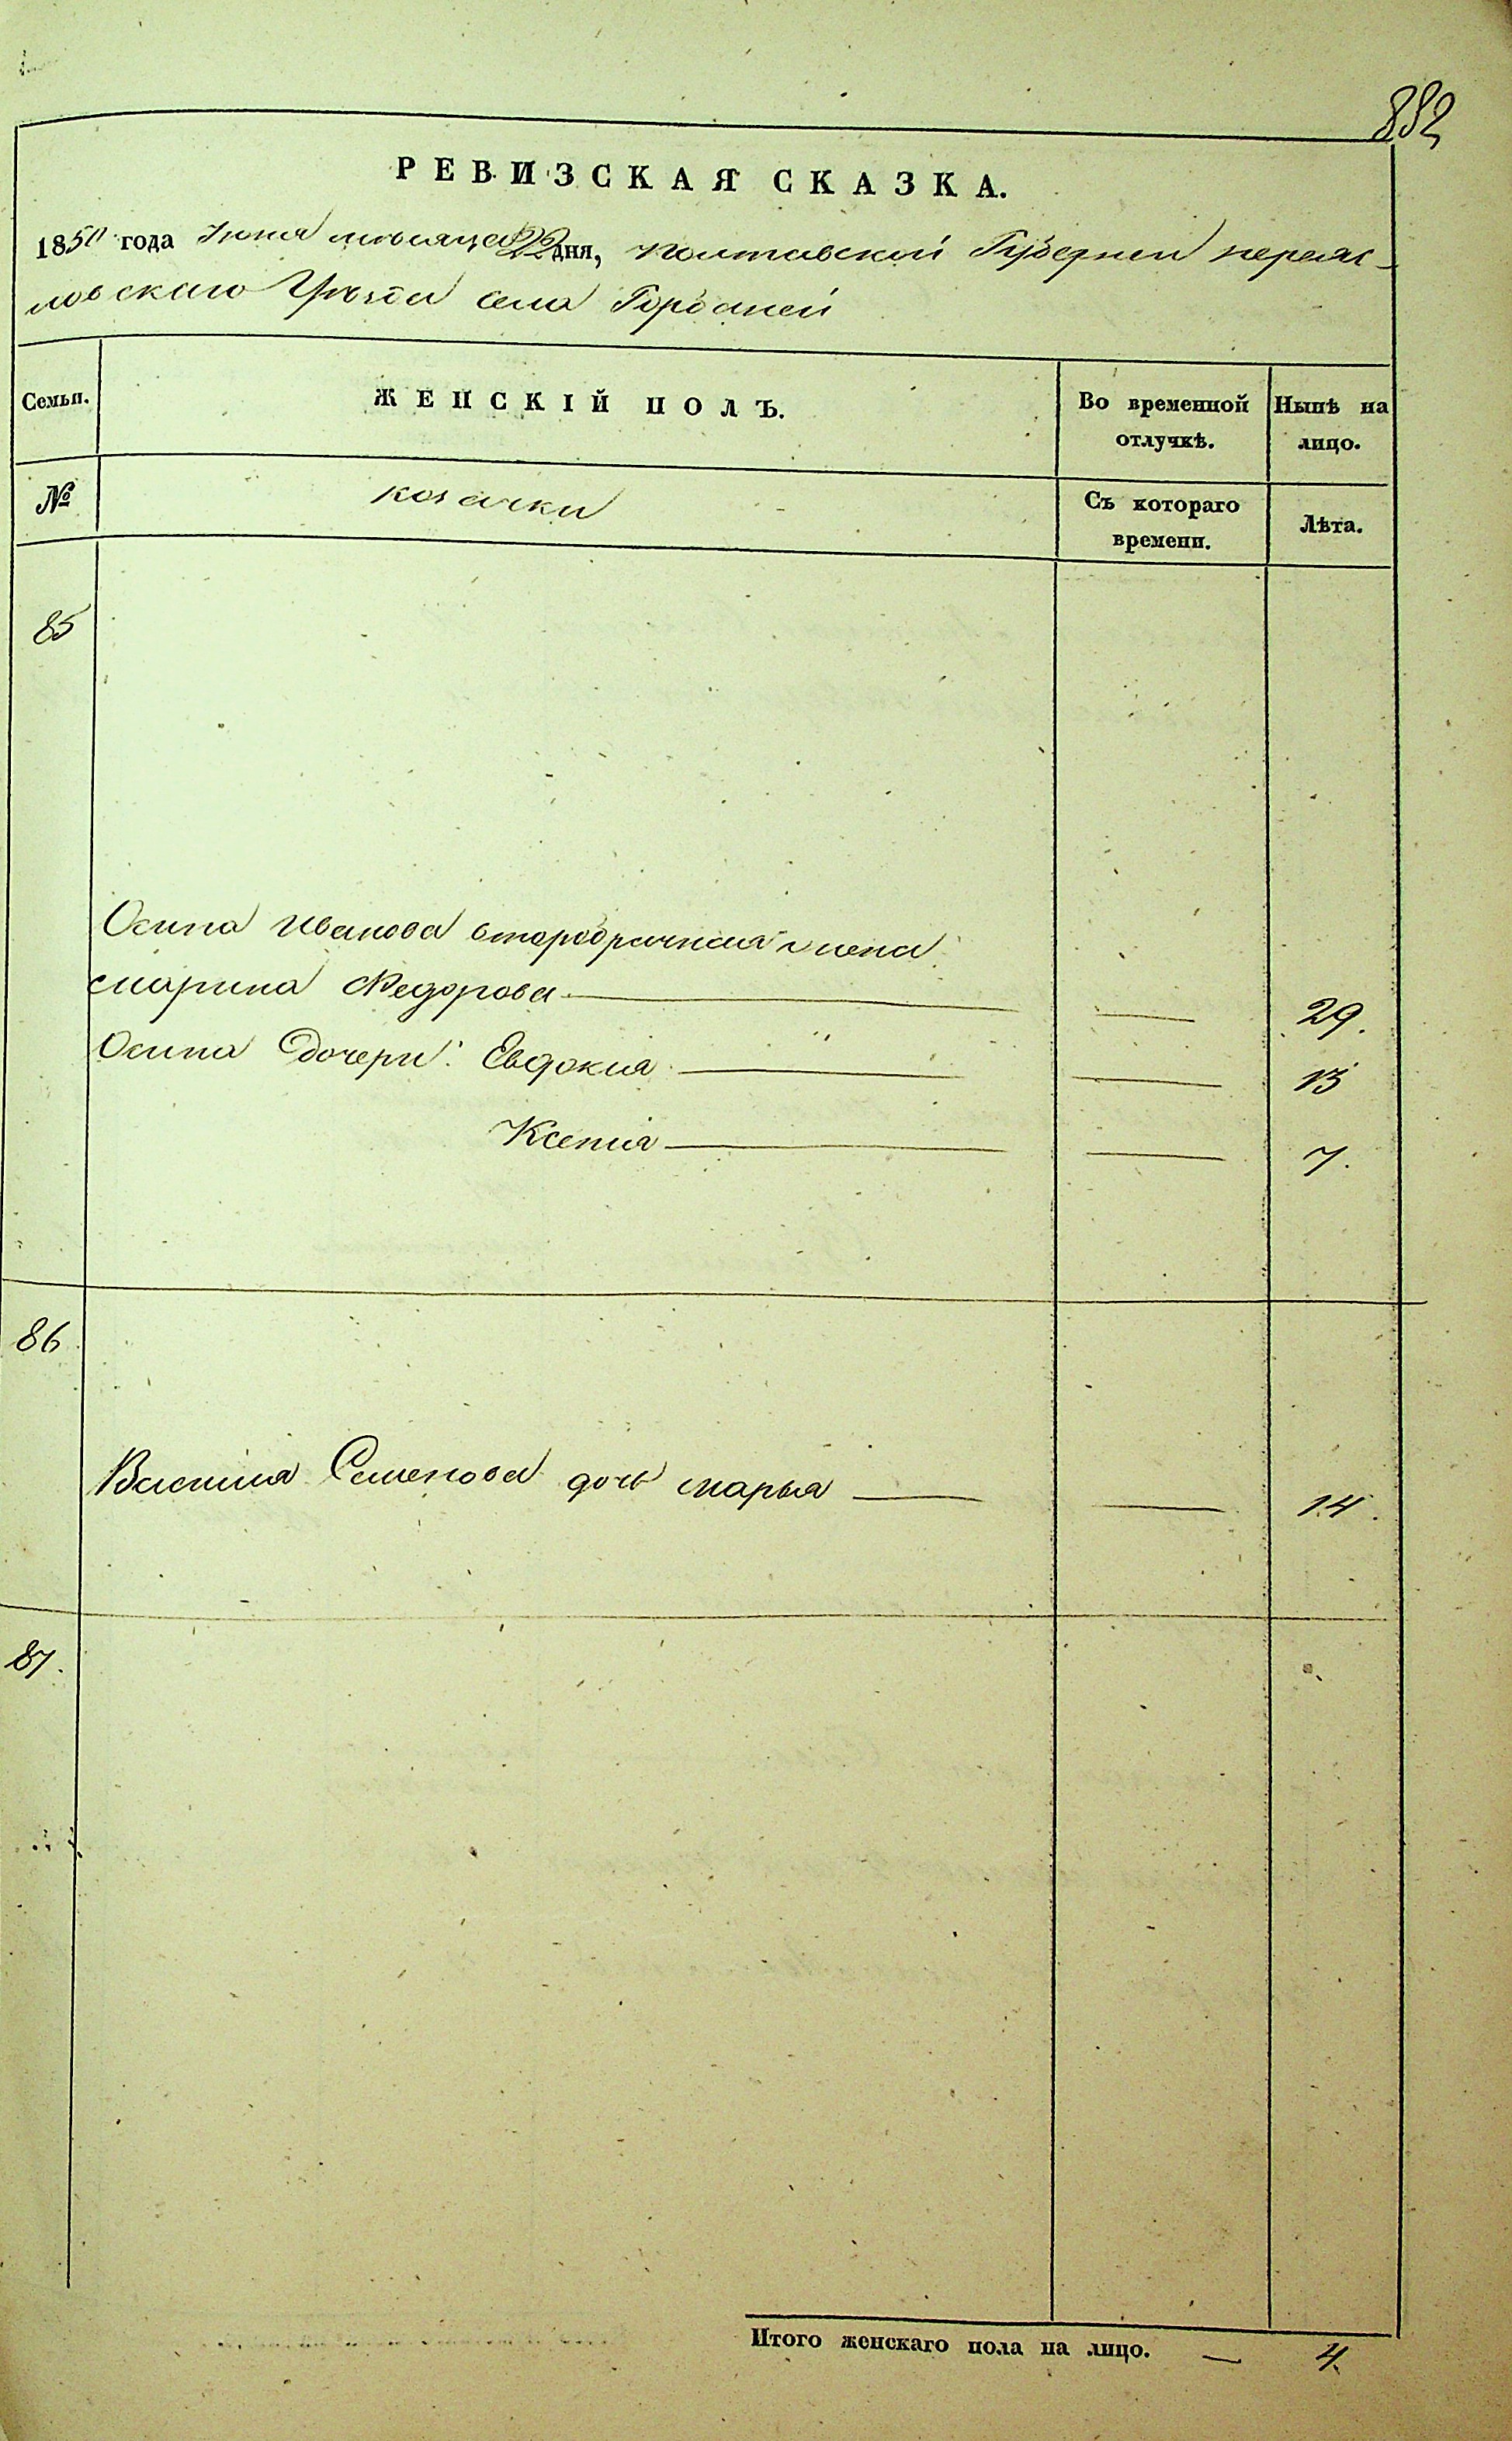 882
РЕВИЗСКАЯ СКАЗКА.
1850 года Іюня месяца 22 дня, полтавской Губерніи переяс-
ловскаго Уѣзда села
Семьи.
ЖЕНСКІЙ ПОЛЪ.
Во временной отлучкѣ.
Нынѣ на лицо.
№
козачки
Съ котораго времени.
Лѣта.
85
Осипа Иванова второбрачная жена
Марина Федорова — — 29.
Осипа Дочери: Евдокия — — 13
Ксенія — — 7.
86
Василия Семенова дочь марья — — 14.
87.
Итого женскаго пола на лицо. — 4.